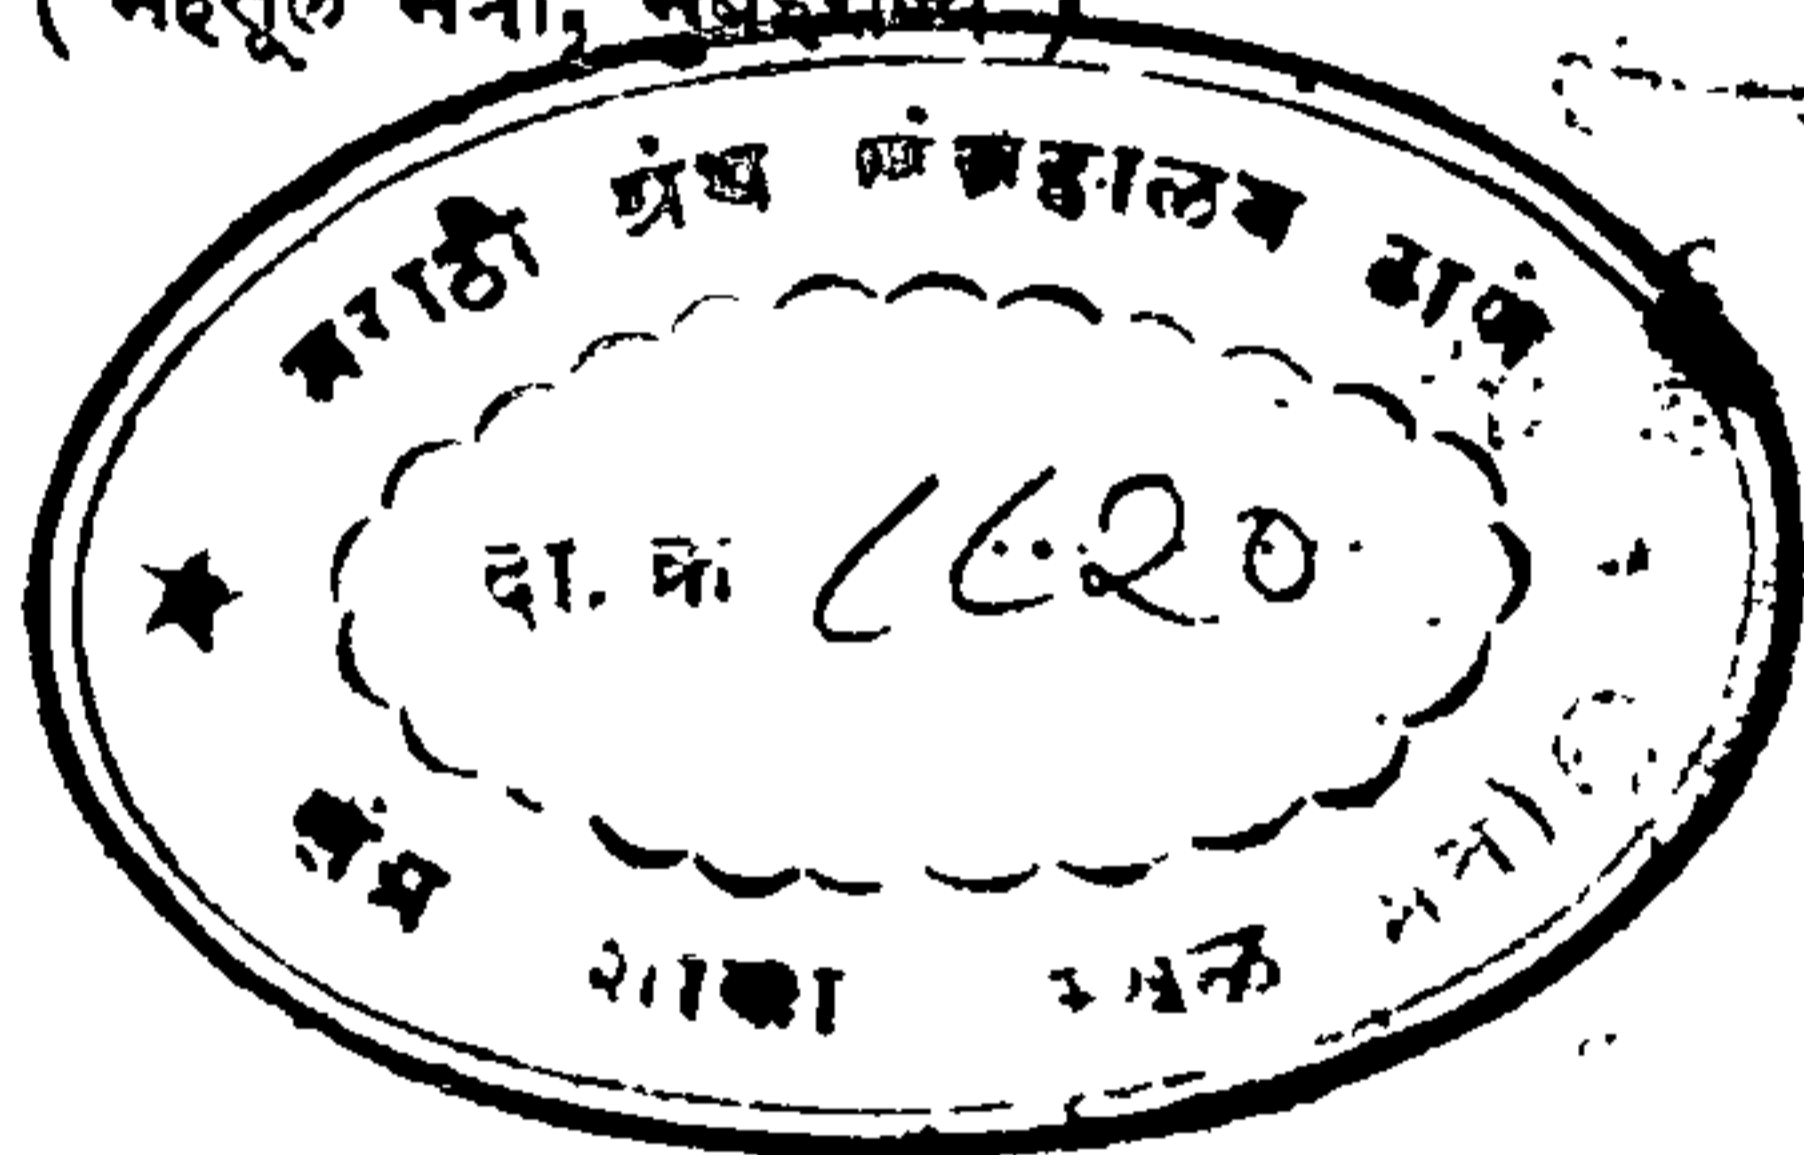 ( महसूल मंत्री, मुंबईराज्य )
मराठी ग्रंथ संग्रहालय ठाणें
दा. क्रं ८८२०
शाखा